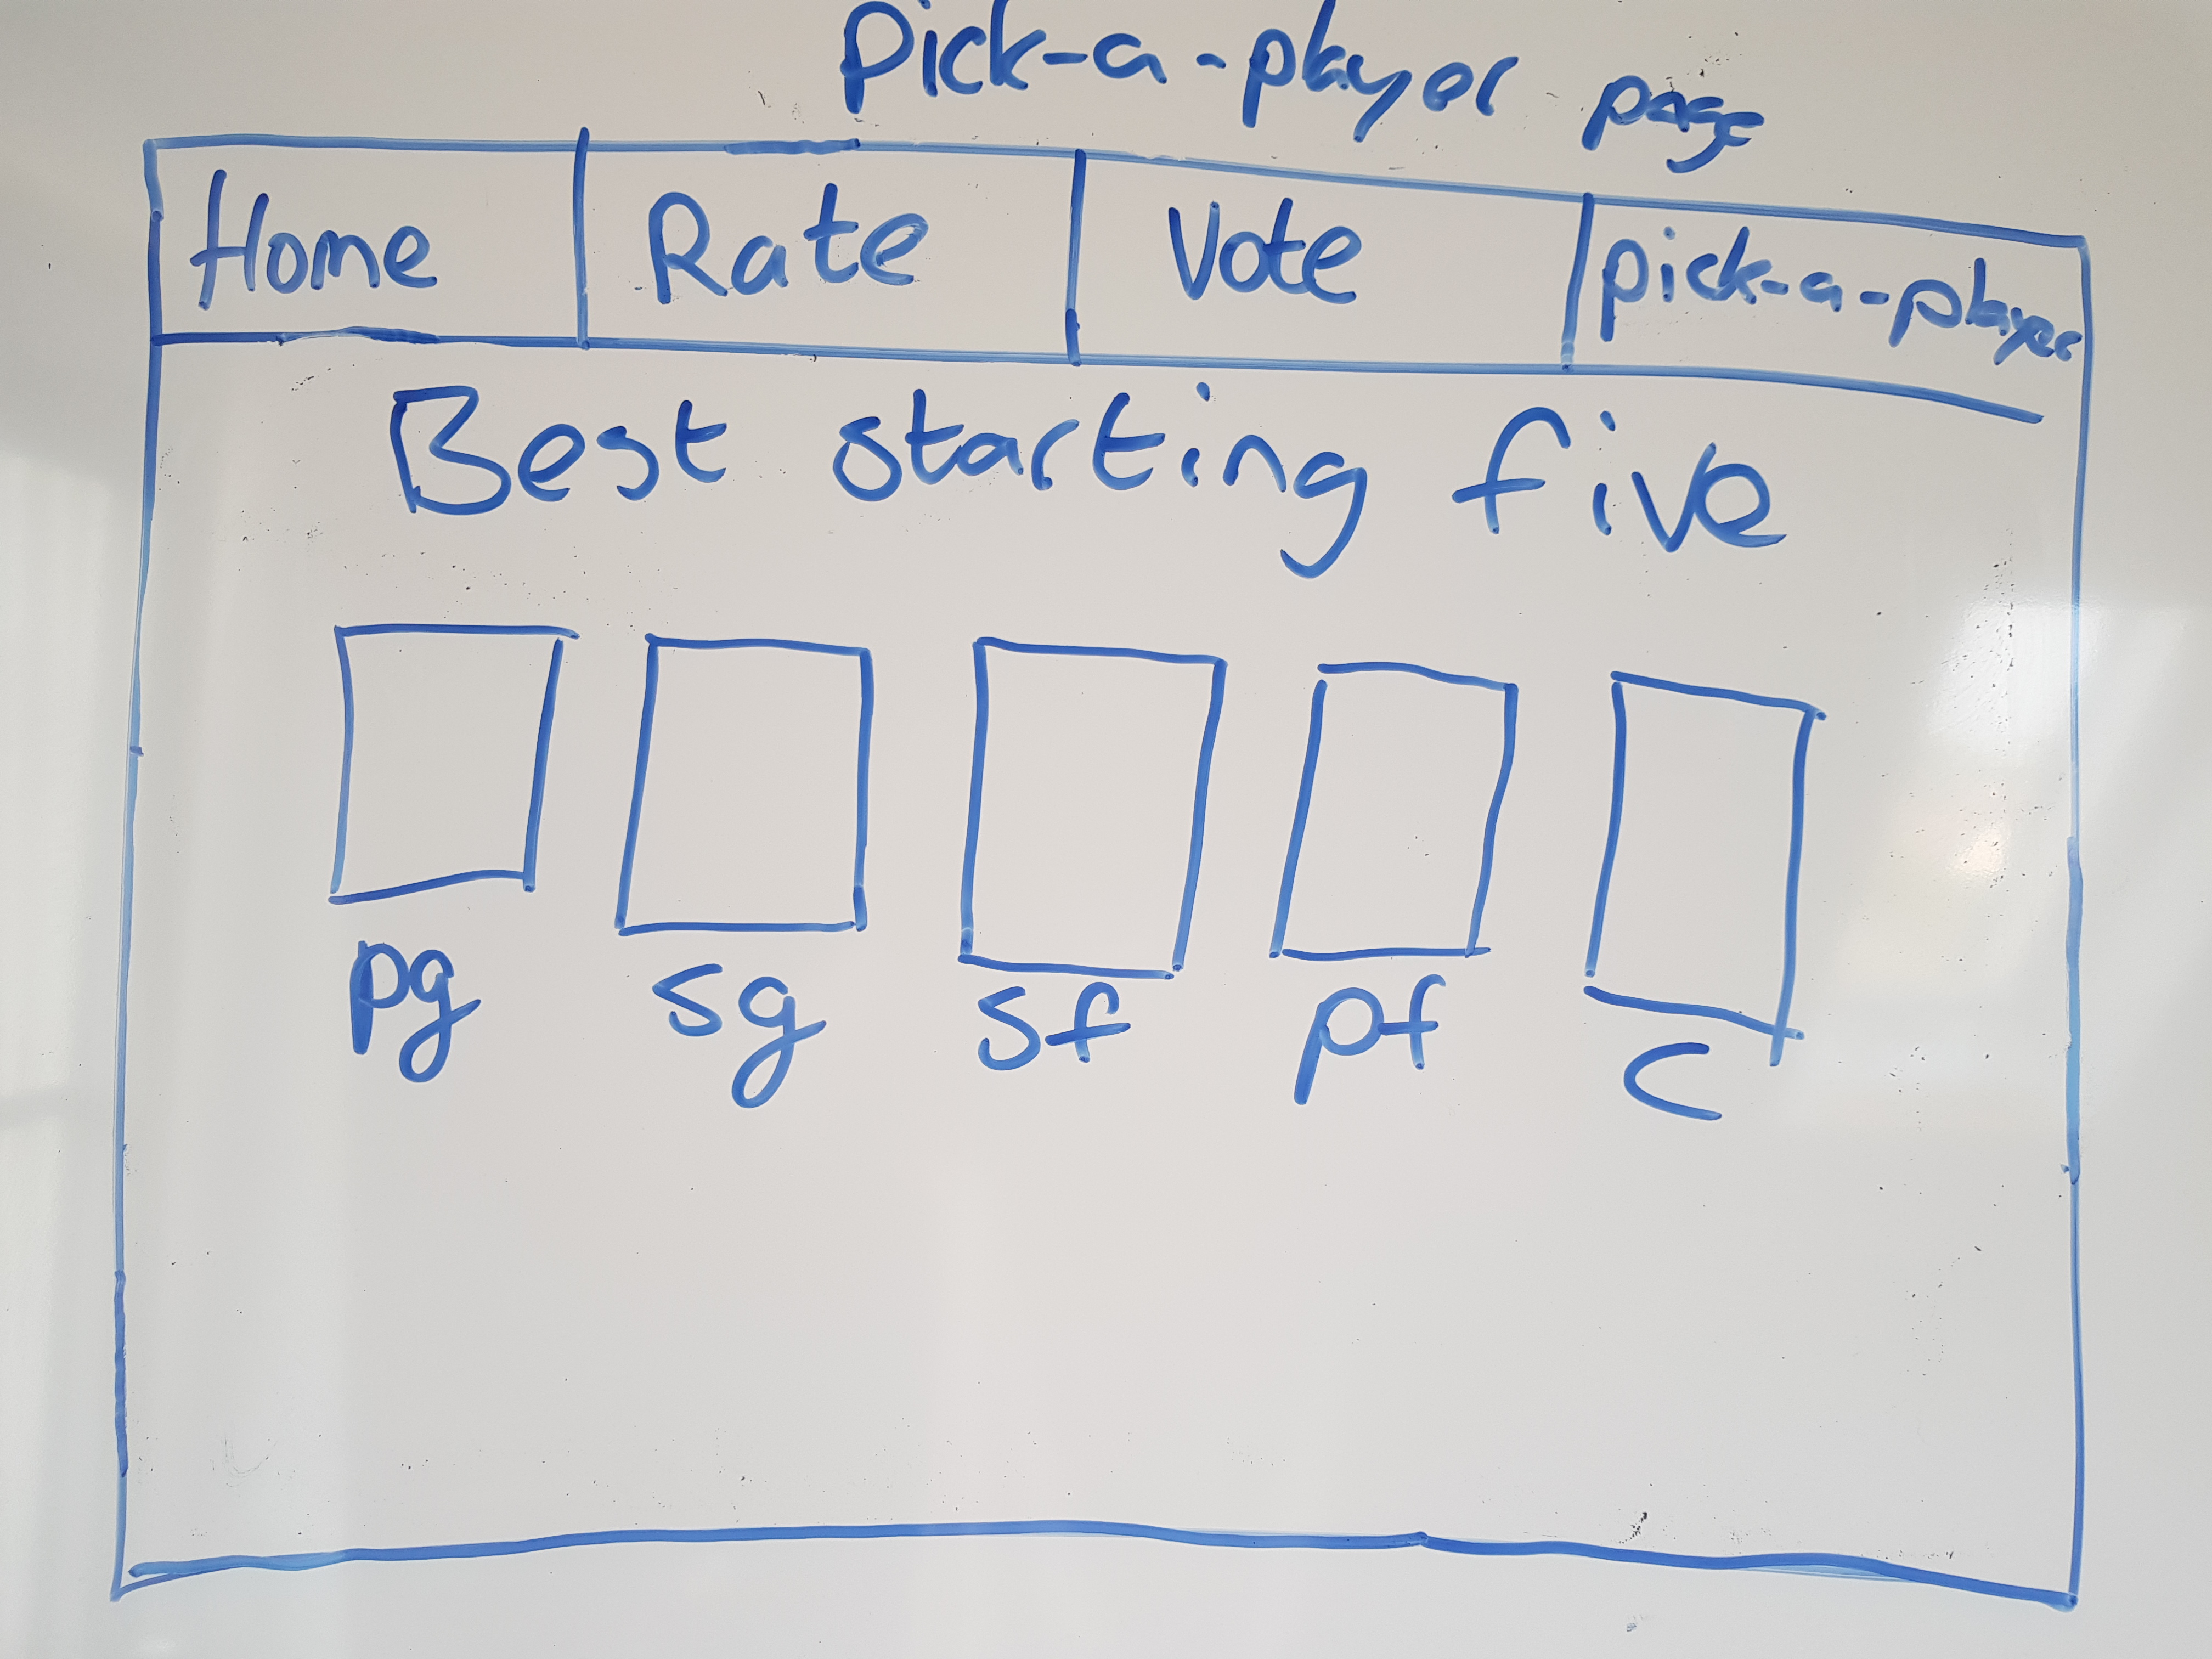 Pick-a-player page
Home Rate Vote pick-a-player
Best starting five
pg sg sf pf c